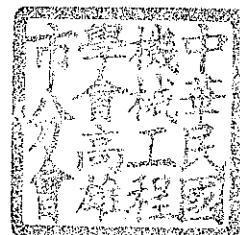 中華民國
機械工程
學會高雄
市分會